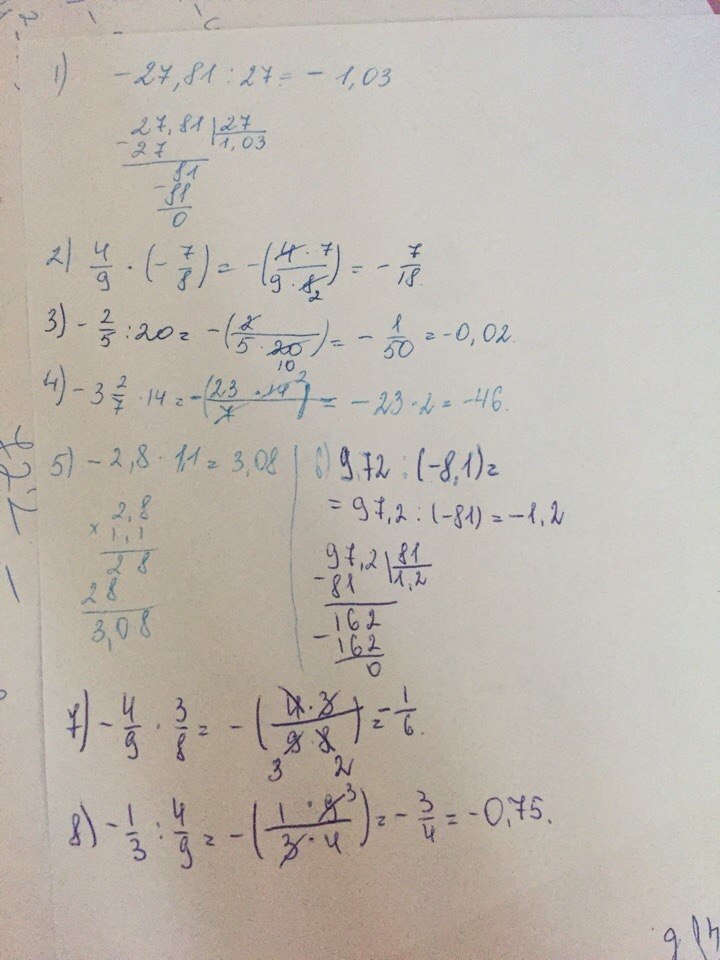 1) -27,81 : 27 = -1,03
27,81 | 27
-27 | 1,03
81
-81
0
2) 4/9 · (-7/8) = -(4·7 / 9·8 2) = -7/18.
3) -2/5 : 20 = -(2 / 5·20 10) = -1/50 = -0,02.
4) -3 2/7 · 14 = -(23·14 2 / 7) = -23·2 = -46.
5) -2,8 · 1,1 = 3,08
2,8
× 1,1
28
28
3,08
6) 9,72 : (-8,1) =
= 97,2 : (-81) = -1,2
97,2 | 81
-81 | 1,2
162
-162
0
7) -4/9 · 3/8 = -(4·3 / 9·8) = -1/6.
3 2
8) -1/3 : 4/9 = -(1·9 3 / 3·4) = -3/4 = -0,75.